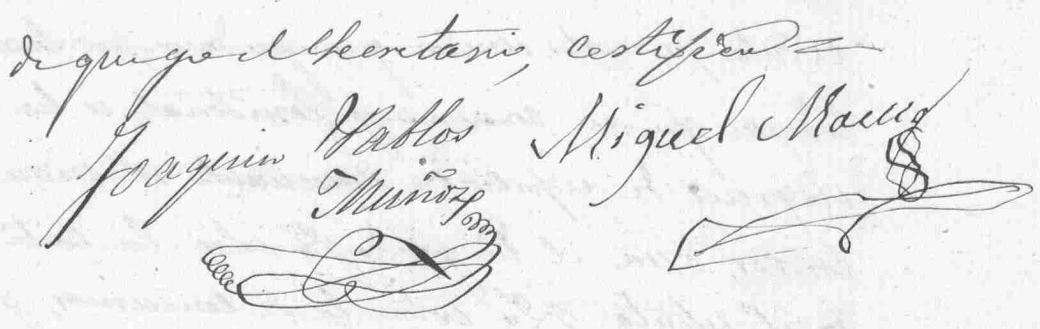 de que yo el Secretario, certifico=
Joaquin Pablos Miguel
Muñoz